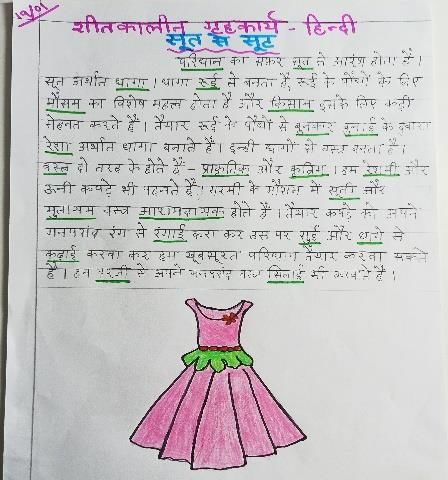 12/01
शीतकालीन गृहकार्य - हिन्दी
सूत से सूट
परिधान का सफर सूत से आरंभ होता है।
सूत अर्थात धागा। धागा रूई से बनता है, रूई के पौधों के लिए
मौसम का विशेष महत्व होता है और किसान इनके लिए कड़ी
मेहनत करते हैं। तैयार रूई के पौधों से बुनकर बुनाई के द्वारा
रेशा अर्थात धागा बनाते हैं। इन्हीं धागों से वस्त्र बनता है।
वस्त्र दो तरह के होते हैं - प्राकृतिक और कृत्रिम। हम रेशमी और
ऊनी कपड़े भी पहनते हैं। गरमी के मौसम में सूती और
मुलायम वस्त्र आरामदायक होते हैं। तैयार कपड़े को अपने
मनपसंद रंग से रंगाई करा कर उस पर सुई और धागे से
कढ़ाई करवा कर हम खूबसूरत परिधान तैयार करवा सकते
हैं। हम दरजी से अपने मनपसंद वस्त्र सिलाई भी करवाते हैं।